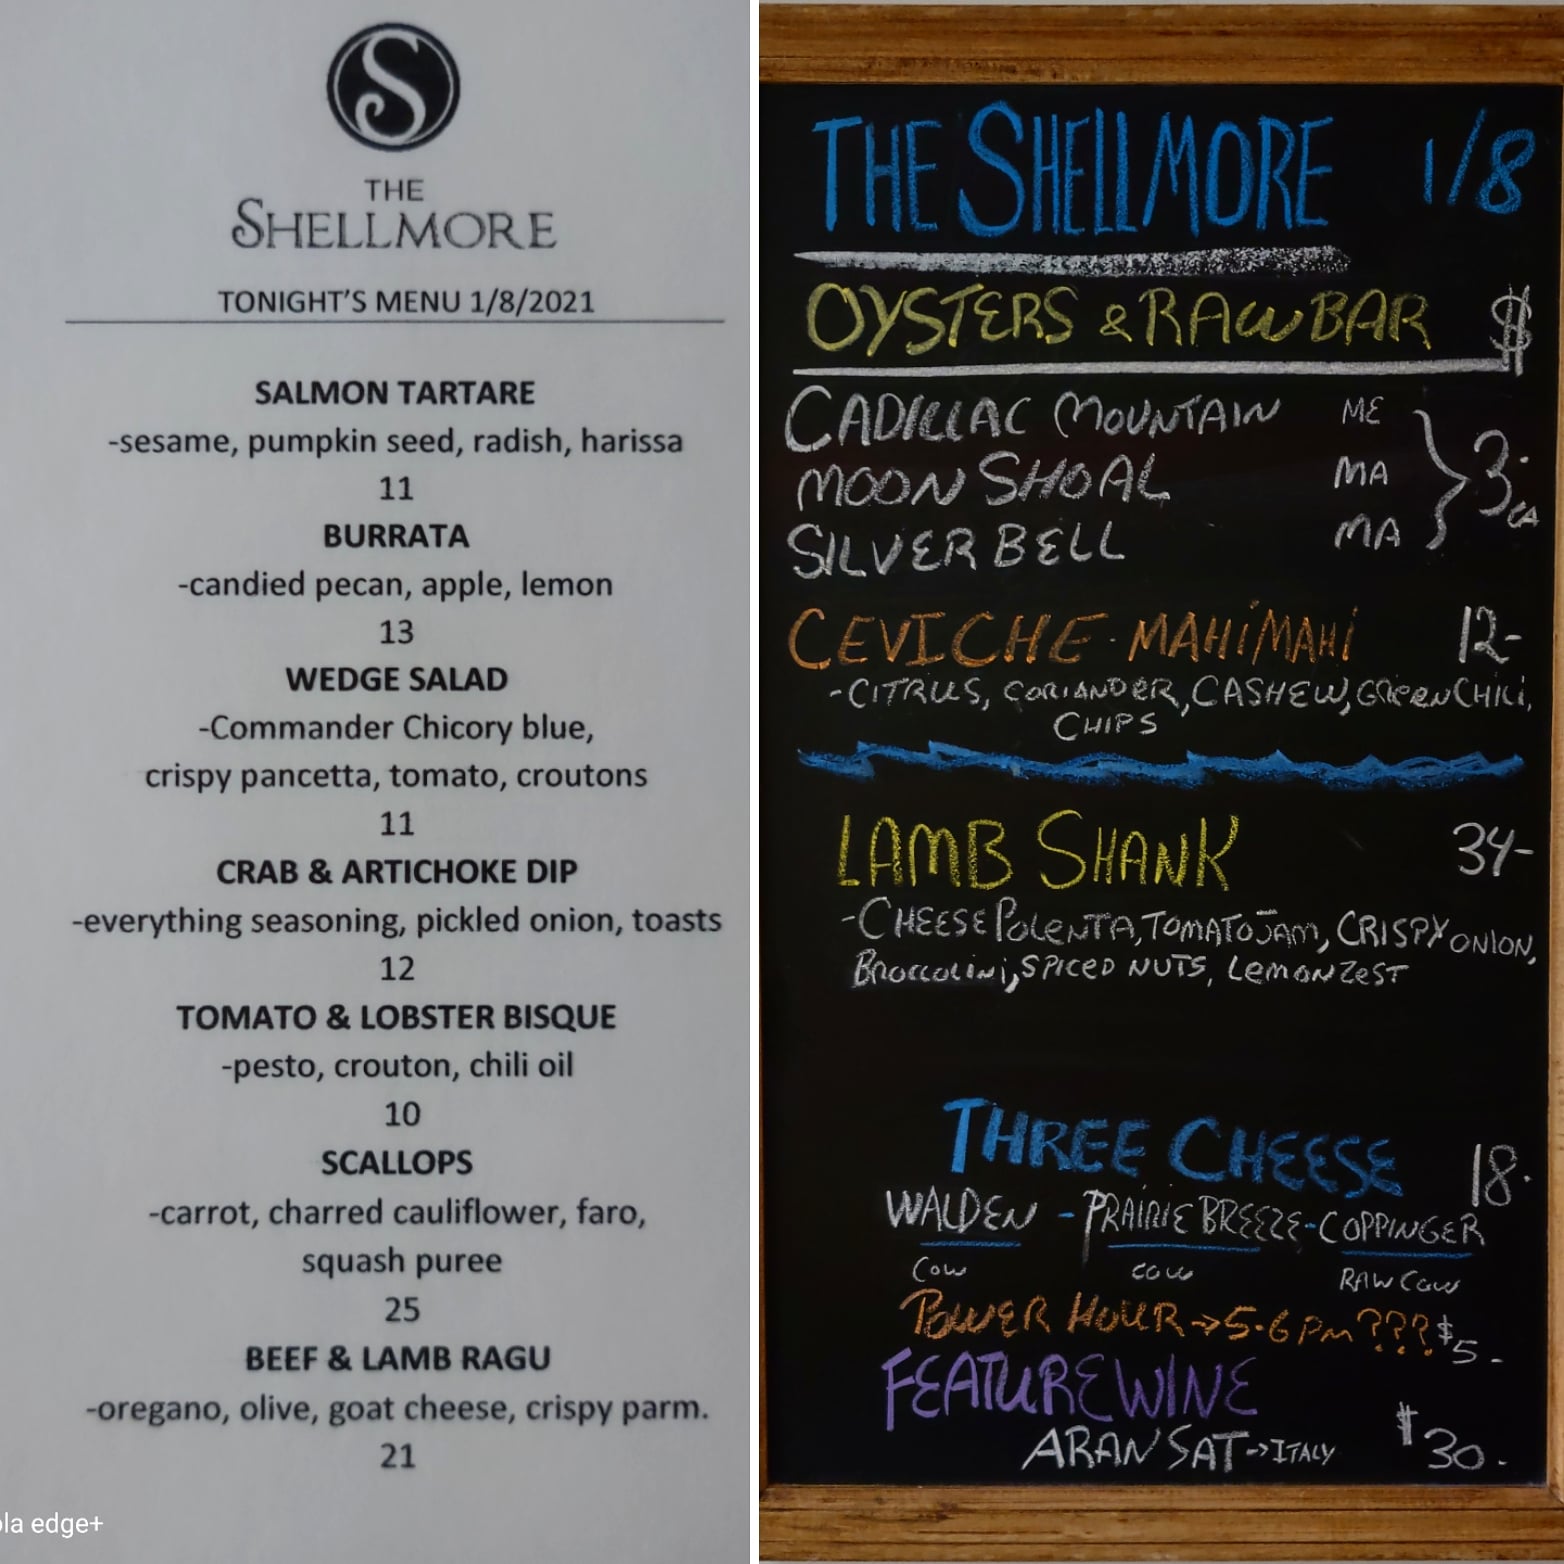 S
THE
SHELLMORE
TONIGHT'S MENU 1/8/2021
SALMON TARTARE
-sesame, pumpkin seed, radish, harissa
11
BURRATA
-candied pecan, apple, lemon
13
WEDGE SALAD
-Commander Chicory blue,
crispy pancetta, tomato, croutons
11
CRAB & ARTICHOKE DIP
-everything seasoning, pickled onion, toasts
12
TOMATO & LOBSTER BISQUE
-pesto, crouton, chili oil
10
SCALLOPS
-carrot, charred cauliflower, faro,
squash puree
25
BEEF & LAMB RAGU
-oregano, olive, goat cheese, crispy parm.
21
ola edge+
THE SHELLMORE 1/8
OYSTERS & RAW BAR $
CADILLAC MOUNTAIN ME
MOON SHOAL MA 3. EA
SILVER BELL MA
CEVICHE - MAHI MAHI 12-
-CITRUS, CORIANDER, CASHEW, GREEN CHILI,
CHIPS
LAMB SHANK 34-
-CHEESE POLENTA, TOMATO JAM, CRISPY ONION,
BROCCOLINI, SPICED NUTS, LEMON ZEST
THREE CHEESE 18.
WALDEN - PRAIRIE BREEZE - COPPINGER
COW COW RAW COW
POWER HOUR → 5-6 PM ??? $5-
FEATURE WINE
ARAN SAT → ITALY $30.